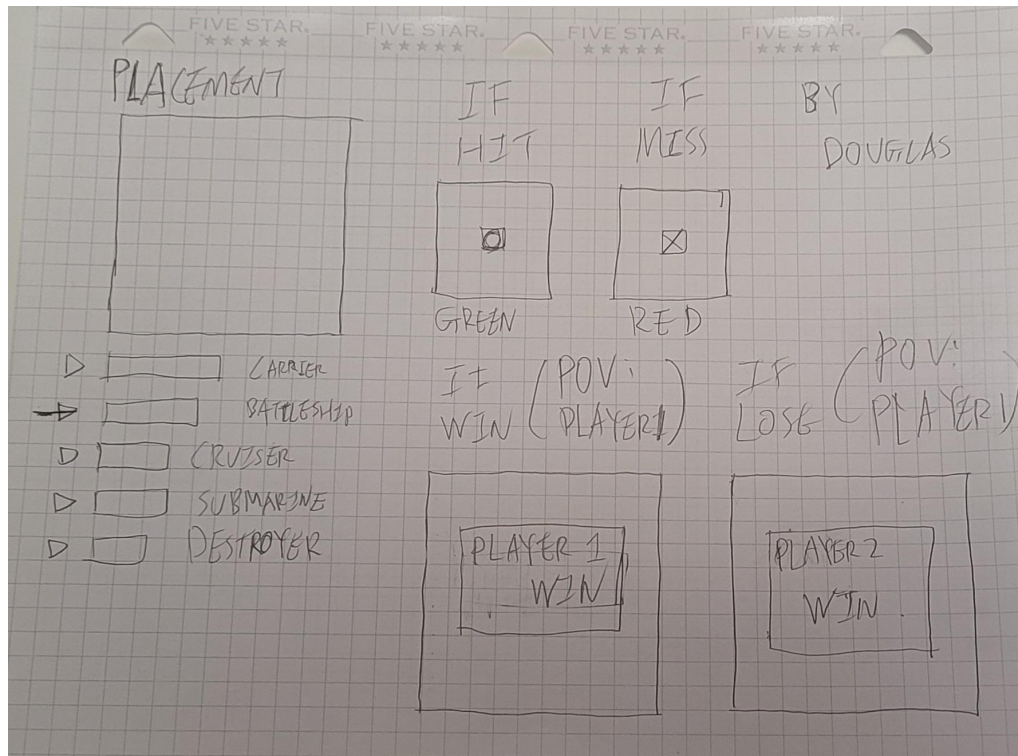 FIVE STAR.
★★★★★
FIVE STAR.
★★★★★
FIVE STAR.
★★★★★
FIVE STAR.
★★★★★
PLACEMENT
CARRIER
BATTLESHIP
CRUISER
SUBMARINE
DESTROYER
IF
HIT
GREEN
IF
MISS
RED
BY
DOUGLAS
IF
WIN
(POV:
PLAYER1)
PLAYER 1
WIN
IF
LOSE
(POV:
PLAYER1)
PLAYER 2
WIN